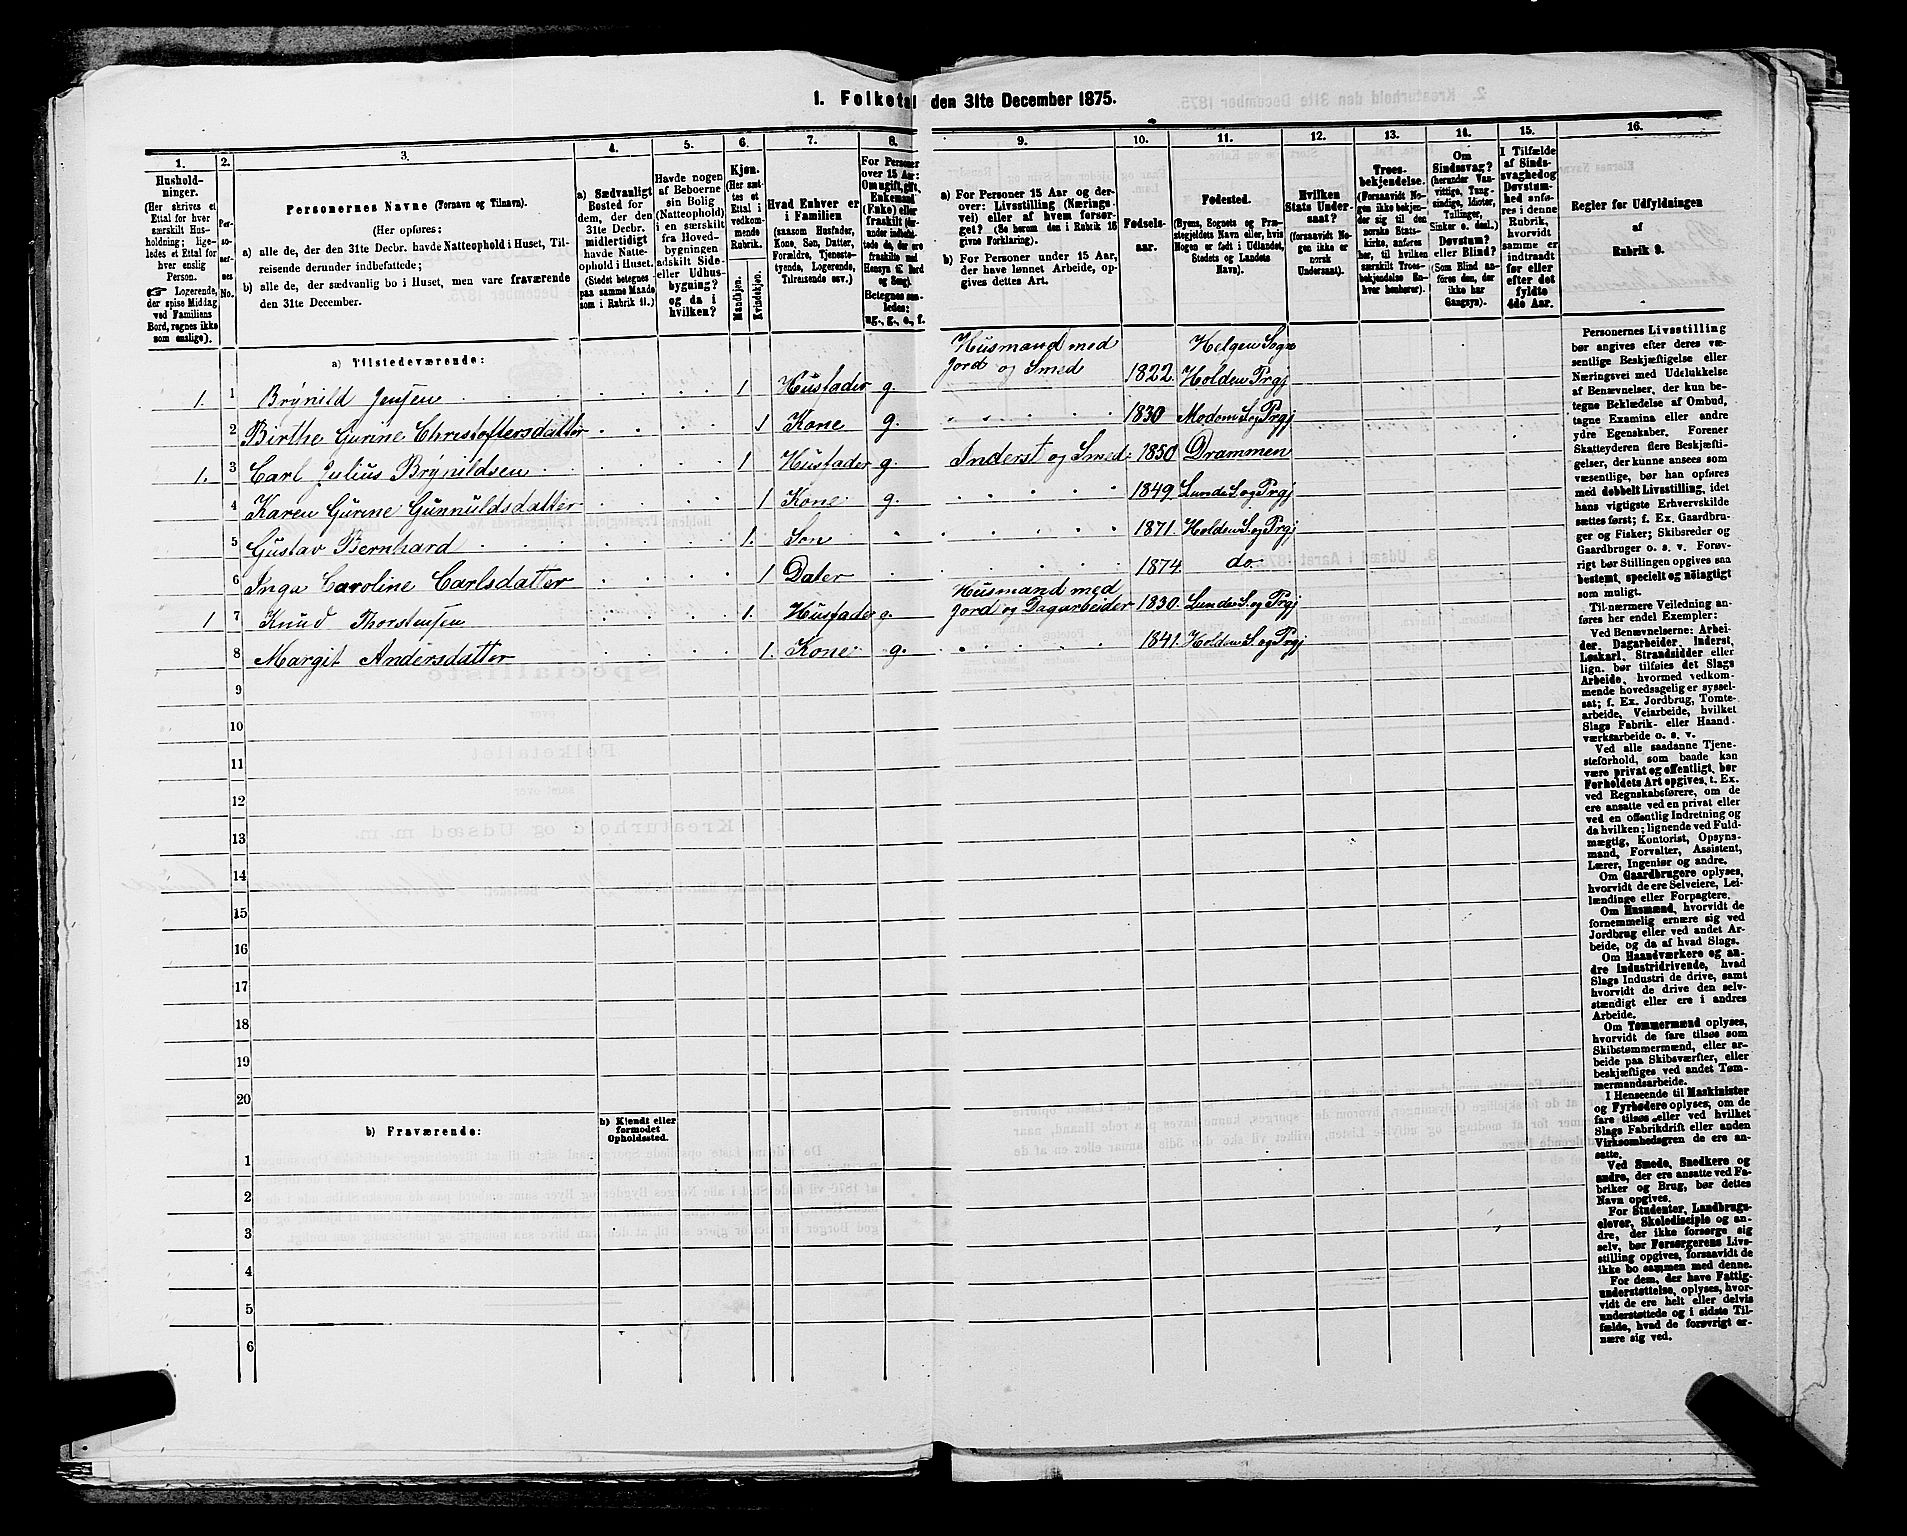 1. Folketal den 31te December 1875.
1. 2. 3. 4. 5. 6. 7. 8. 9. 10. 11. 12. 13. 14. 15. 16.
Hushold-
ninger.
(Her skrives et
Ettal for hver
særskilt Hus-
holdning; lige-
ledes et Ettal for
hver enslig
Person.
☞ Logerende,
der spise Middag
ved Familiens
Bord, regnes ikke
som enslige).
Per-
so-
ner-
nes
No.
Personernes Navne (Fornavn og Tilnavn).
(Her opføres:
a) alle de, der den 31te Decbr. havde Natteophold i Huset, Til-
reisende derunder indbefattede;
b) alle de, der sædvanlig bo i Huset, men vare fraværende
den 31te December.
a) Sædvanligt
Bosted for
dem, der den
31te Decbr.
midlertidigt
havde Natte-
ophold i Huset.
(Stedet betegnes
paa samme Maade
som i Rubrik 11.)
Havde nogen
af Beboerne
sin Bolig
(Natteophold)
i en særskilt
fra Hoved-
bygningen
adskilt Side-
eller Udhus-
bygning?
og da i
hvilken?
Kjøn.
(Her sæt-
tes et
Ettal i
vedkom-
mende
Rubrik.
Mandkjøn.
Kvindekjøn.
Hvad Enhver er
i Familien
(saasom Husfader,
Kone, Søn, Datter,
Forældre, Tjeneste-
tyende, Logerende,
Tilreisende osv.)
For Personer
over 15 Aar:
Om ugift, gift,
Enkemand
(Enke) eller
fraskilt
Betegnes saa-
ledes:
ug., g., e., f.
a) For Personer 15 Aar og der-
over: Livsstilling (Nærings-
vei) eller af hvem forsør-
get? (Se herom den i Rubrik 16
givne Forklaring).
b) For Personer under 15 Aar,
der have lønnet Arbeide, op-
gives dettes Art.
Fødsels-
aar.
Fødested.
(Byens, Sognets og Præ-
stegjeldets Navn eller, hvis
Nogen er født i Udlandet,
Stedets og Landets
Navn).
Hvilken
Stats Under-
saat?
(forsaavidt No-
gen ikke er
norsk
Undersaat).
Troes-
bekjendelse.
(Forsaavidt No-
gen ikke bekjen-
der sig til den
norske Stats-
kirke, anføres
her, til hvilken
særskilt Troes-
bekjendelse En-
hver henhører).
Om
Sindssvag?
(herunder Van-
vittige, Tung-
sindige, Idioter,
Tullinger,
Sinker o. desl.)
Døvstum?
eller Blind?
(Som Blind an-
føres den, der
ikke har
Gangsyn).
I Tilfælde
af Sinds-
svaghed og
Døvstum-
hed anfø-
res i denne
Rubrik,
hvorvidt
samme er
indtraadt
før eller
efter det
fyldte
4de Aar.
Regler for Udfyldningen
af
Rubrik 9.
a) Tilstedeværende:
1. 1 Brynild Jensen 1 Husfader g Husmand med Jord og Smed 1822. Helgen Sogn Holden Prgj
2 Birthe Gurine Christoffersdatter 1 Kone g. 1830 Modem S. og Prgj
1. 3 Carl Julius Brynildsen 1 Husfader g. Inderst og Smed 1850 Drammen
4 Karen Gurine Gunnuldsdatter 1 Kone g. 1849 Lunde S. og Prgj
5 Gustav Bernhard 1. Søn 1871. Holden S. og Prgj
6 Inga Caroline Carlsdatter 1 Dater 1874 do
1 7 Knud Thorstensen 1. Husfader g. Husmand med Jord og Dagarbeider 1830. Lunde S. og Prgj
8 Margit Andersdatter 1. Kone g. 1841. Holden S. og Prgj
9
10
11
12
13
14
15
16
17
18
19
20
b) Fraværende: b) Kjendt eller
formodet
Opholdssted.
1
2
3
4
5
6
Personernes Livsstilling
bør angives efter deres væ-
sentlige Beskjæftigelse eller
Næringsvei med Udelukkelse
af Benævnelser, der kun be-
tegne Beklædelse af Ombud,
tagne Examina eller andre
ydre Egenskaber. Forener
Skatteyderen flere Beskjæfti-
gelser, der kunne ansees som
væsentlige, bør han opføres
med dobbelt Livsstilling, idet
hans vigtigste Erhvervskilde
sættes først; f. Ex. Gaardbru-
ger og Fisker; Skibsreder og
Gaardbruger o. s. v. Forøv-
rigt bør Stillingen opgives saa
bestemt, specielt og nøiagtigt
som muligt.
Til nærmere Veiledning an-
føres her endel Exempler:
Ved Benævnelserne: Arbei-
der, Dagarbeider, Inderst,
Løskarl, Strandsidder eller
lign. bør tilføies det Slags
Arbeide, hvormed vedkom-
mende hovedsagelig er syssel-
sat; f. Ex. Jordbrug, Tomte-
arbeide, Veiarbeide, hvilket
Slags Fabrik- eller Haand-
værksarbeide o. s. v.
Ved alle saadanne Tjene-
steforhold, som baade kan
være privat og offentligt, bør
Forholdets Art opgives, t. Ex.
ved Regnskabsførere, om de
ere ansatte ved en privat eller
ved en offentlig Indretning og
da hvilken; lignende ved Fuld-
mægtig, Kontorist, Opsyns-
mand, Forvalter, Assistent,
Lærer, Ingeniør og andre.
Om Gaardbrugere oplyses,
hvorvidt de ere Selveiere, Lei-
lændinge eller Forpagtere.
Om Husmænd, hvorvidt de
fornemmelig ernære sig ved
Jordbrug eller ved andet Ar-
beide, og da af hvad Slags.
Om Haandværkere og an-
dre Industridrivende, hvad
Slags Industri de drive, samt
hvorvidt de drive den selv-
stændigt eller ere i andres
Arbeide.
Om Tømmermænd oplyses,
hvorvidt de fare tilsøs som
Skibstømmermænd, eller ar-
beide paa Skibsværfter, eller
beskjæftiges ved andet Tøm-
mermandsarbeide.
I Henseende til Maskinister
og Fyrbødere oplyses, om de
fare tilsøs eller ved hvilket
Slags Fabrikdrift eller anden
Virksomhedsgren de ere an-
satte.
Ved Smede, Snedkere og
andre, der ere ansatte ved Fa-
briker og Brug, bør dettes
Navn opgives.
For Studenter, Landbrugs-
elever, Skoledisciple og an-
dre, der ikke forsørge sig
selv, bør Forsørgerens Livs-
stilling opgives, forsaavidt de
ikke bo sammen med denne.
For dem, der have Fattig-
understøttelse, oplyses, hvor-
vidt de ere helt eller delvis
understøttede og i sidste Til-
fælde, hvad de forøvrigt er-
nære sig ved.